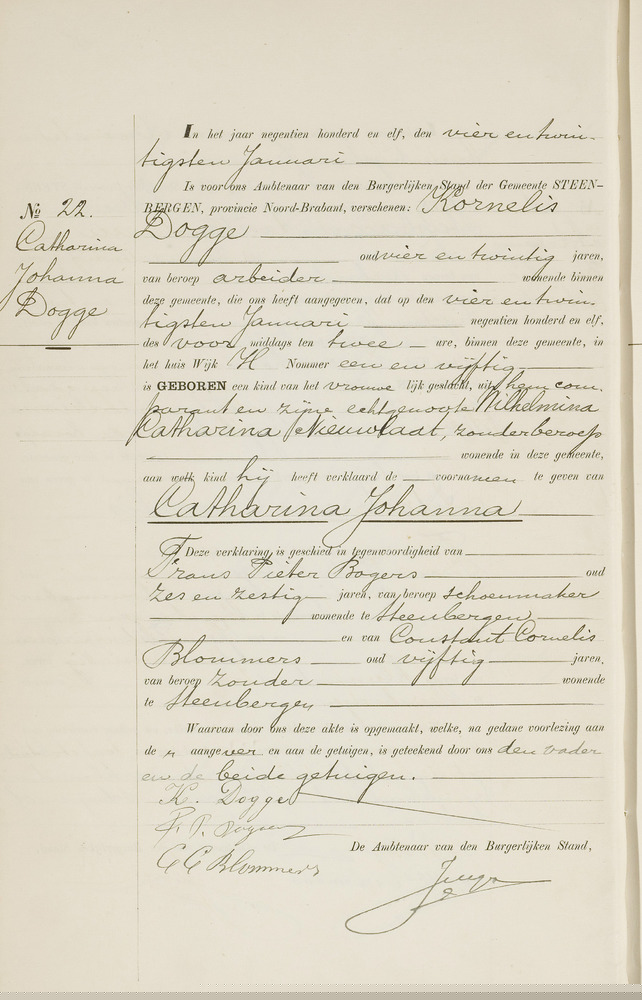 In het jaar negentien honderd en elf, den vier en twin-
tigsten Januari
Is voor ons Ambtenaar van den Burgerlijken Stand der Gemeente STEEN-
BERGEN, provincie Noord-Brabant, verschenen: Kornelis
Dogge
oud vier en twintig jaren,
van beroep arbeider wonende binnen
deze gemeente, die ons heeft aangegeven, dat op den vier en twin-
tigsten Januari negentien honderd en elf,
des voor middags ten twee ure, binnen deze gemeente, in
het huis Wijk H Nommer een en vijftig
is GEBOREN een kind van het vrouwe lijk geslacht, uit hem com-
parant en zijne echtgenoote Wilhelmina
Catharina Nieuwlaat, zonder beroep
wonende in deze gemeente,
aan welk kind hij heeft verklaard de voornamen te geven van
Catharina Johanna
Deze verklaring is geschied in tegenwoordigheid van
Frans Pieter Bogers oud
zes en zestig jaren, van beroep schoenmaker
wonende te Steenbergen
en van Constant Cornelis
Blommers oud vijftig jaren,
van beroep zonder wonende
te Steenbergen
Waarvan door ons deze akte is opgemaakt, welke, na gedane voorlezing aan
de n aangever en aan de getuigen, is geteekend door ons den vader
en de beide getuigen.
K. Dogge
F. P. Bogers
C C Blommers
De Ambtenaar van den Burgerlijken Stand,
No 22.
Catharina
Johanna
Dogge